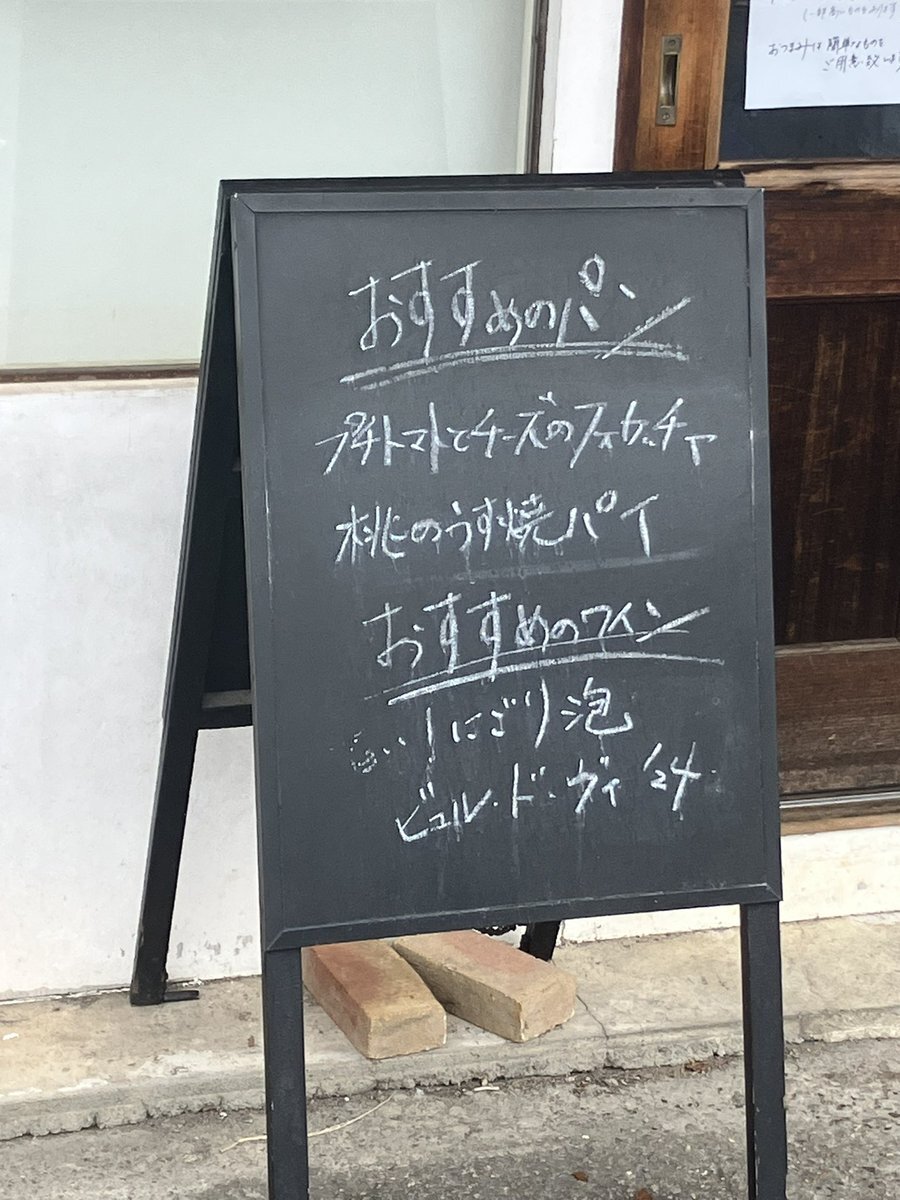 (一部高いものもあります
おつまみは簡単なものを
ご用意致しま
おすすめのパン
トマトとチーズのフォカッチャ
桃のうす焼パイ
おすすめのワイン
にごり泡
ビュル・ド・ヴィ '24